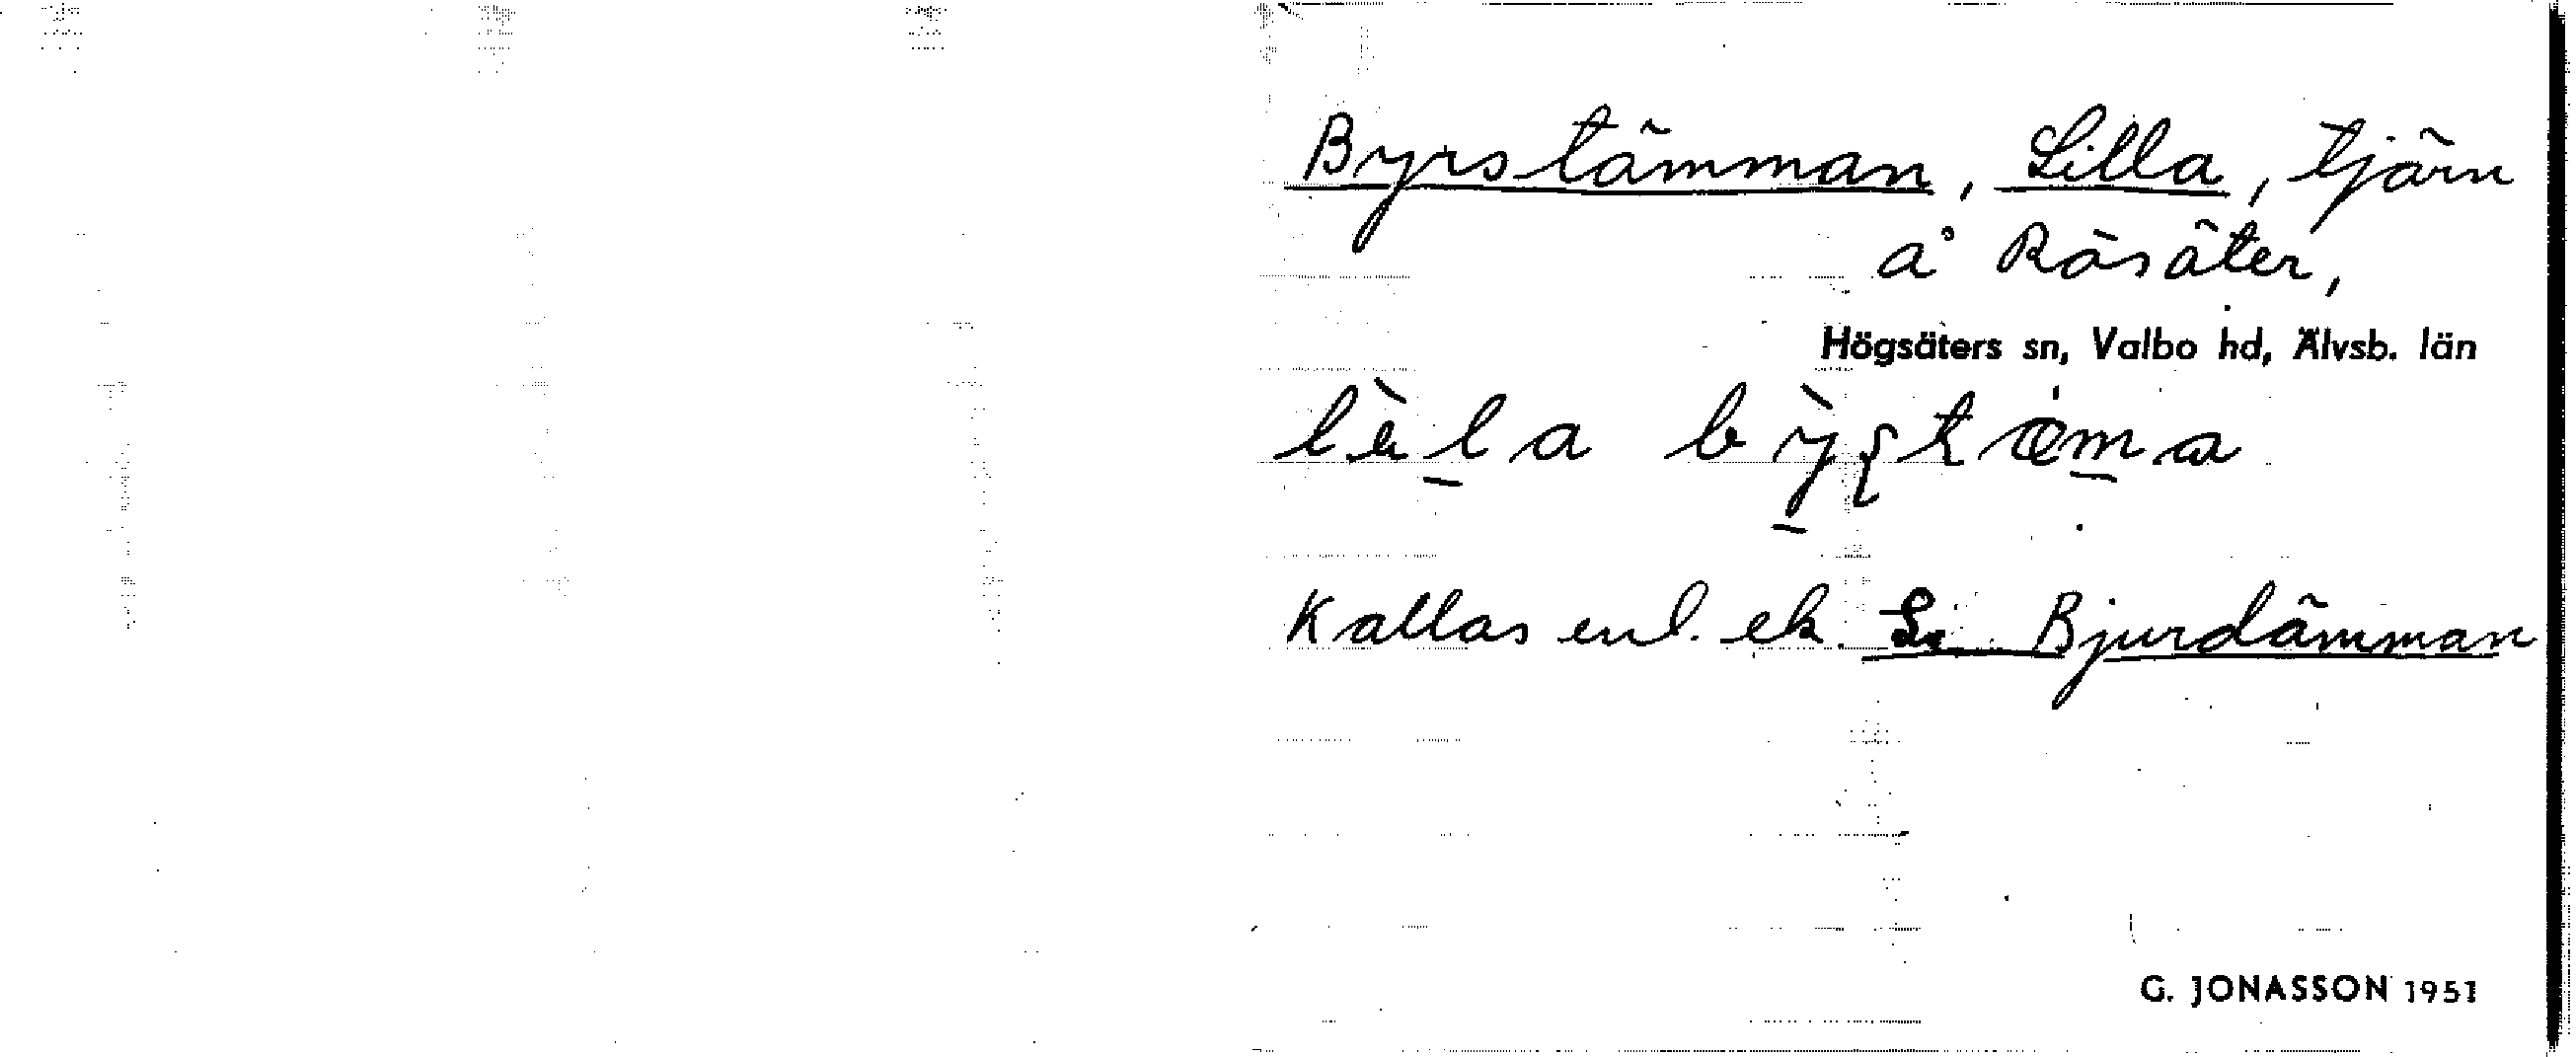 Byrstämman, Lilla, tjärn
å Råsäter,
Högsäters sn, Valbo hd, Älvsb. län
Kallas enl. ek. L. Bjurdämman
G. JONASSON 1951